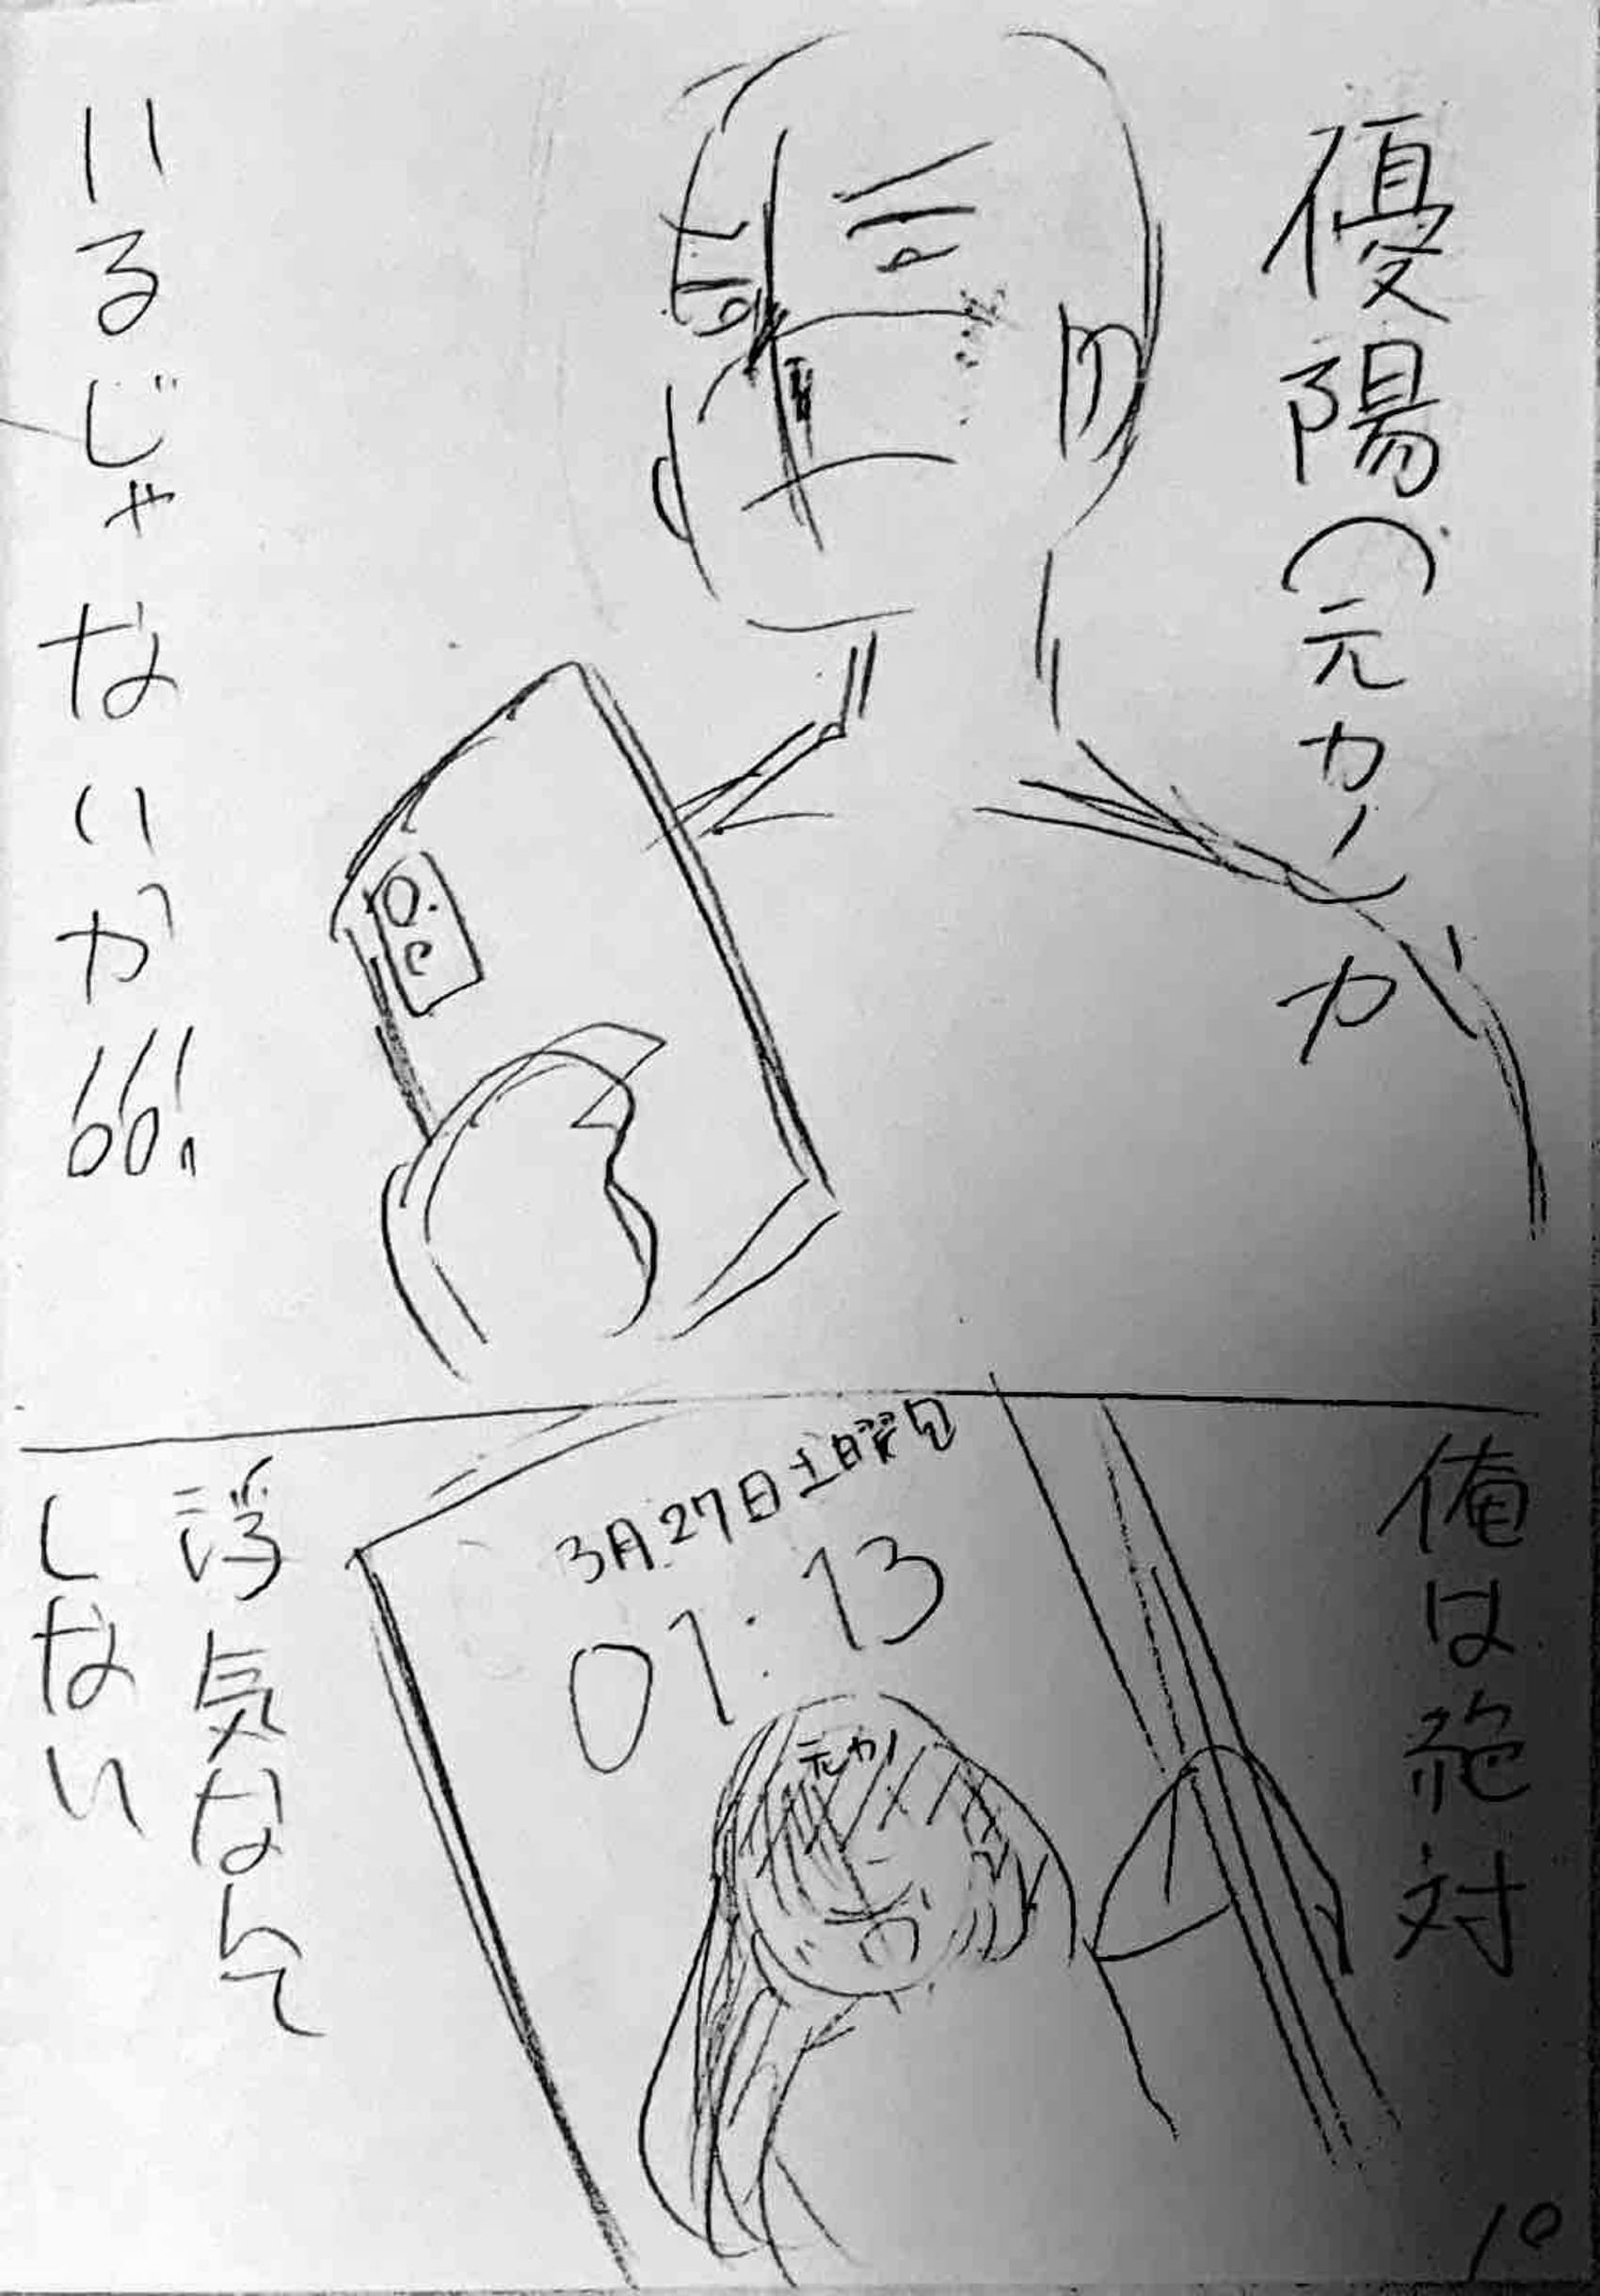 優陽(元カノ)が
いるじゃないか!!!
俺は絶対
3月27日土曜日
01:13
元カノ
浮気なんて
しない
10